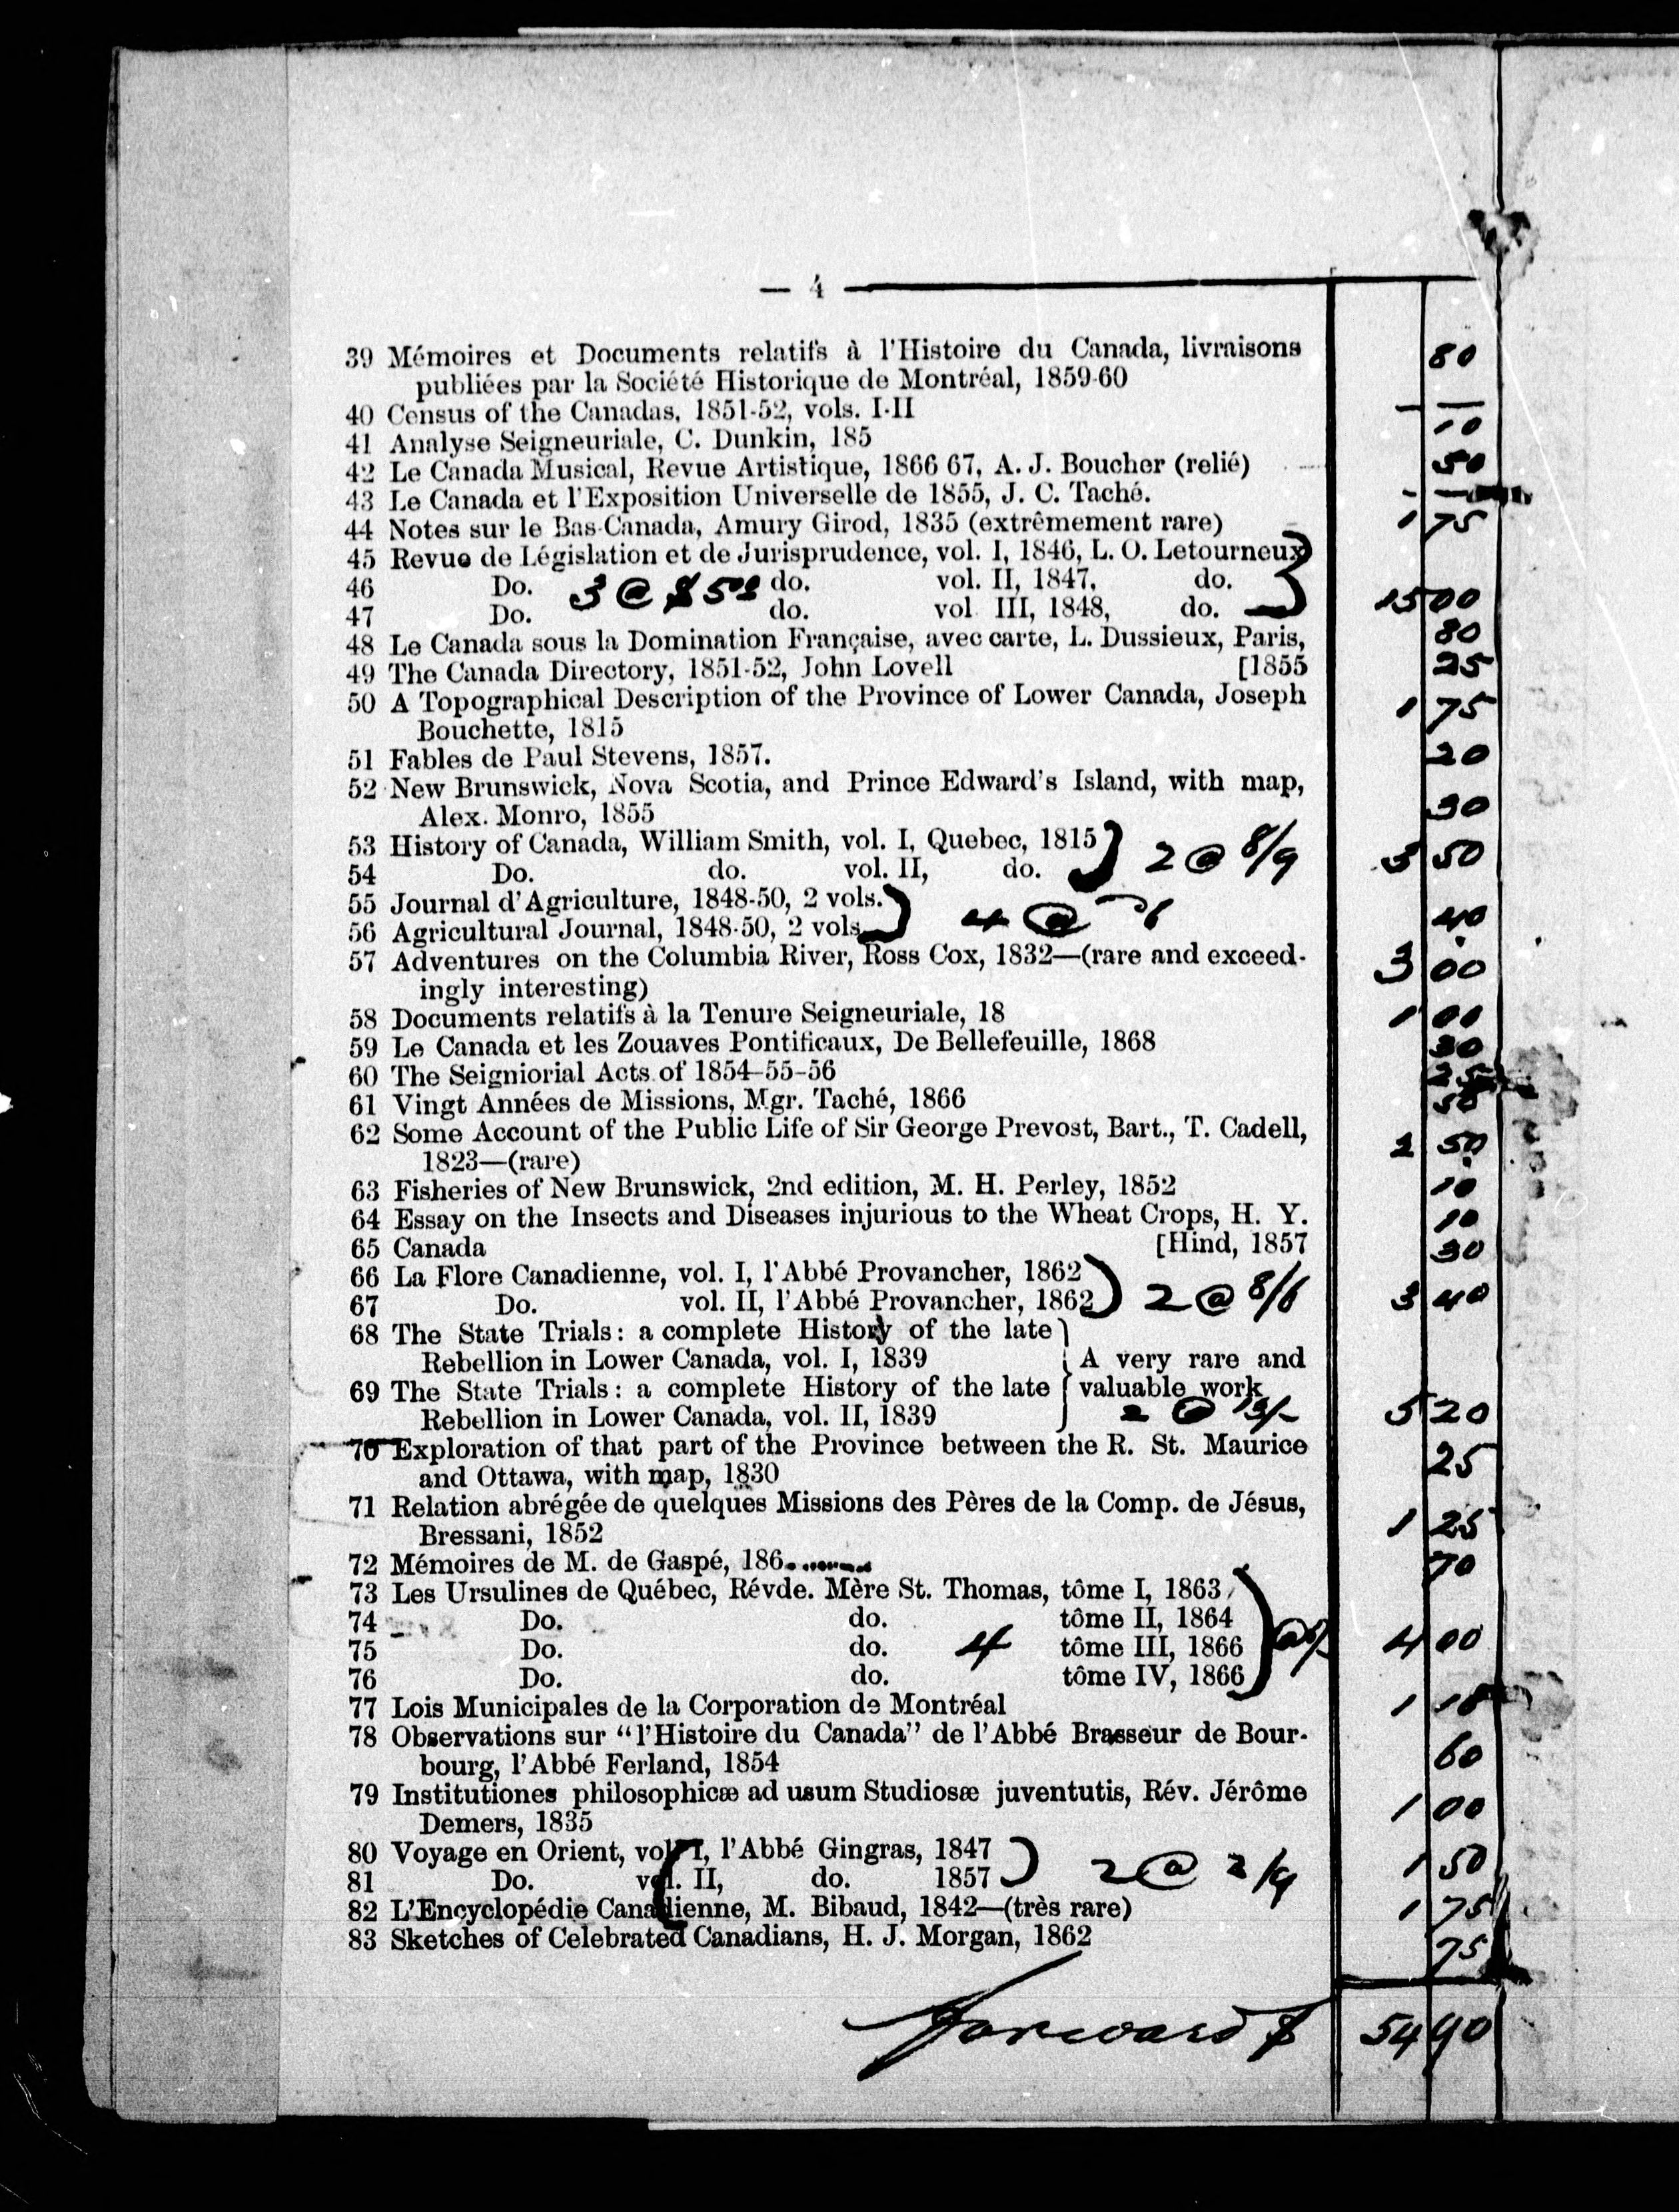 — 4 —
39 Mémoires et Documents relatifs à l'Histoire du Canada, livraisons 80
publiées par la Société Historique de Montréal, 1859-60
40 Census of the Canadas, 1851-52, vols. I-II — —
41 Analyse Seigneuriale, C. Dunkin, 185 10
42 Le Canada Musical, Revue Artistique, 1866 67, A. J. Boucher (relié) 50
43 Le Canada et l'Exposition Universelle de 1855, J. C. Taché. - —
44 Notes sur le Bas-Canada, Amury Girod, 1835 (extrêmement rare) 1 75
45 Revue de Législation et de Jurisprudence, vol. I, 1846, L. O. Letourneux
46 Do. 3 @ $5 00 do. vol. II, 1847, do.
47 Do. do. vol. III, 1848, do. 15 00
48 Le Canada sous la Domination Française, avec carte, L. Dussieux, Paris, 80
49 The Canada Directory, 1851-52, John Lovell [1855 25
50 A Topographical Description of the Province of Lower Canada, Joseph 1 75
Bouchette, 1815
51 Fables de Paul Stevens, 1857. 20
52 New Brunswick, Nova Scotia, and Prince Edward's Island, with map,
Alex. Monro, 1855 30
53 History of Canada, William Smith, vol. I, Quebec, 1815 2 @ 8/9 3 50
54 Do. do. vol. II, do.
55 Journal d'Agriculture, 1848-50, 2 vols.
56 Agricultural Journal, 1848-50, 2 vols. 4 @ 6 40
57 Adventures on the Columbia River, Ross Cox, 1832—(rare and exceed- 3 00
ingly interesting)
58 Documents relatifs à la Tenure Seigneuriale, 18 1 00
59 Le Canada et les Zouaves Pontificaux, De Bellefeuille, 1868 30
60 The Seigniorial Acts of 1854-55-56 25
61 Vingt Années de Missions, Mgr. Taché, 1866 50
62 Some Account of the Public Life of Sir George Prevost, Bart., T. Cadell, 2 50
1823—(rare)
63 Fisheries of New Brunswick, 2nd edition, M. H. Perley, 1852 10
64 Essay on the Insects and Diseases injurious to the Wheat Crops, H. Y. 10
65 Canada [Hind, 1857 30
66 La Flore Canadienne, vol. I, l'Abbé Provancher, 1862
67 Do. vol. II, l'Abbé Provancher, 1862 2 @ 8/6 3 40
68 The State Trials: a complete History of the late
Rebellion in Lower Canada, vol. I, 1839 A very rare and
69 The State Trials: a complete History of the late valuable work
Rebellion in Lower Canada, vol. II, 1839 2 @ 13/- 5 20
70 Exploration of that part of the Province between the R. St. Maurice 25
and Ottawa, with map, 1830
71 Relation abrégée de quelques Missions des Pères de la Comp. de Jésus, 1 25
Bressani, 1852
72 Mémoires de M. de Gaspé, 186....... 70
73 Les Ursulines de Québec, Révde. Mère St. Thomas, tôme I, 1863
74 Do. do. tôme II, 1864
75 Do. do. 4 tôme III, 1866 @ 5/ 4 00
76 Do. do. tôme IV, 1866
77 Lois Municipales de la Corporation de Montréal 1 10
78 Observations sur "l'Histoire du Canada" de l'Abbé Brasseur de Bour-
bourg, l'Abbé Ferland, 1854 60
79 Institutiones philosophicæ ad usum Studiosæ juventutis, Rév. Jérôme 1 00
Demers, 1835
80 Voyage en Orient, vol. I, l'Abbé Gingras, 1847
81 Do. vol. II, do. 1857 2 @ 3/9 1 50
82 L'Encyclopédie Canadienne, M. Bibaud, 1842—(très rare) 1 75
83 Sketches of Celebrated Canadians, H. J. Morgan, 1862 75
Forward $ 54 90